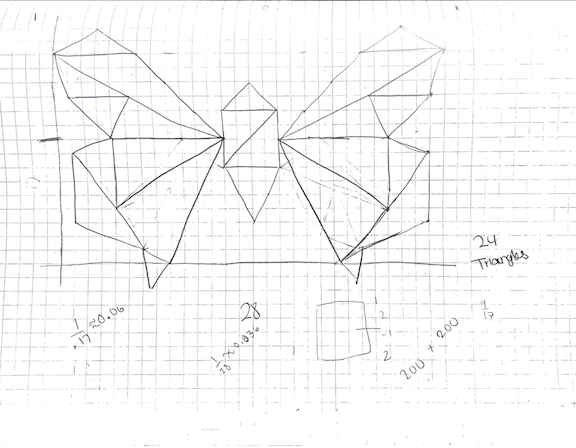 24
Triangles
1/17 ≈ 0.06
28
1/28 ≈ 0.036
1
2
-1
2
200 + 200
9/17